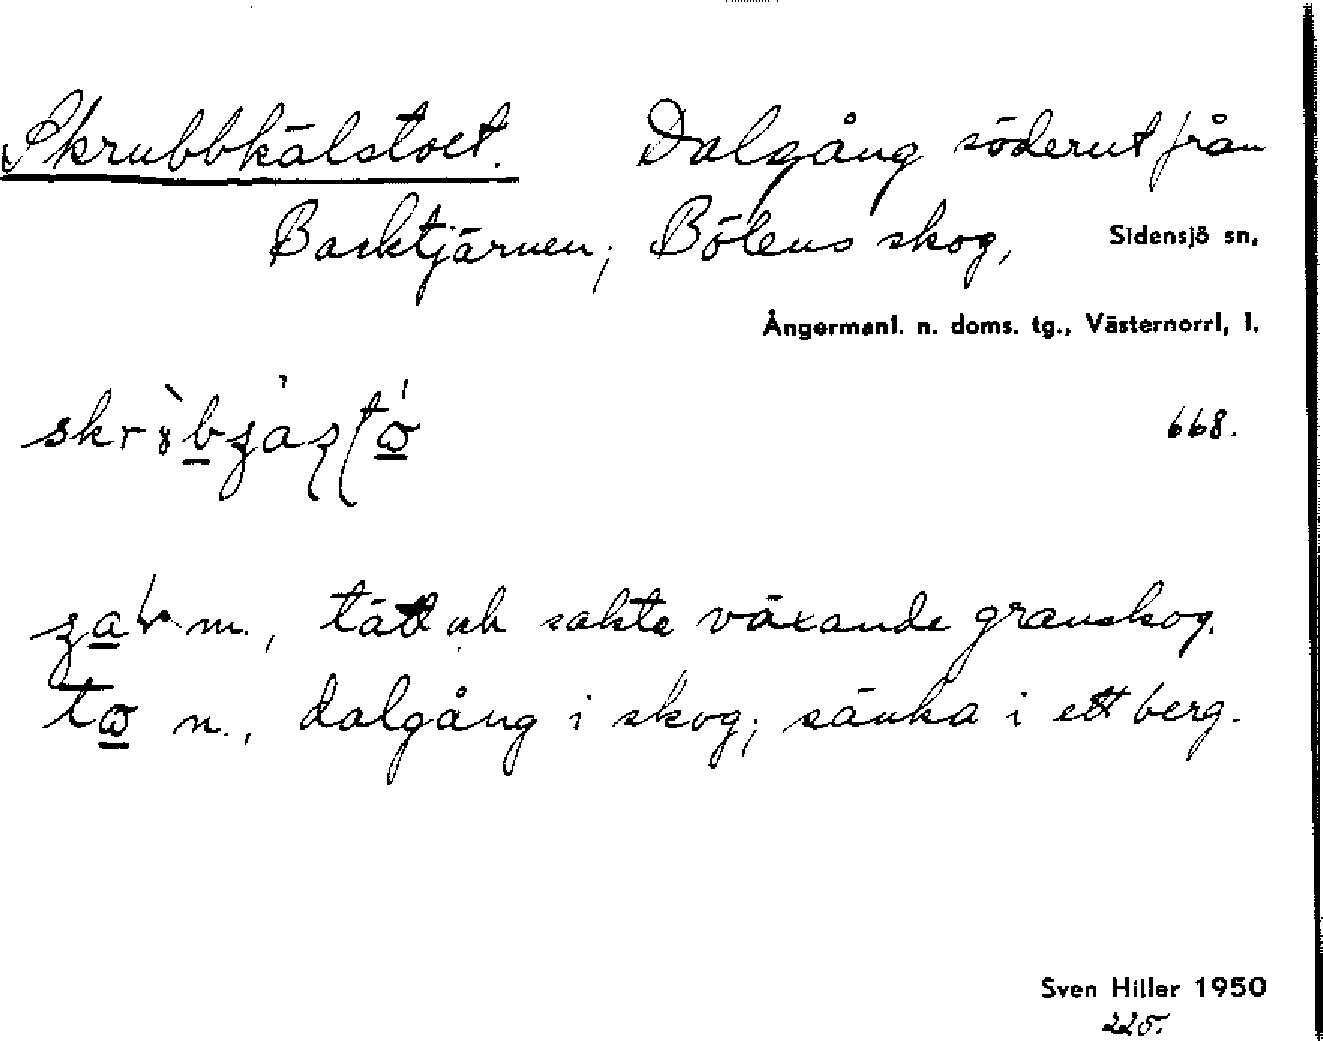 Skrubbkälstoet. Dalgång söderut från
Backtjärnen; Bölens skog, Sidensjö sn,
Ångermanl. n. doms. tg., Västernorrl, l.
668.
m., tätt och sakta växande granskog.
n., dalgång i skog; sänka i ett berg.
Sven Hiller 1950
225.